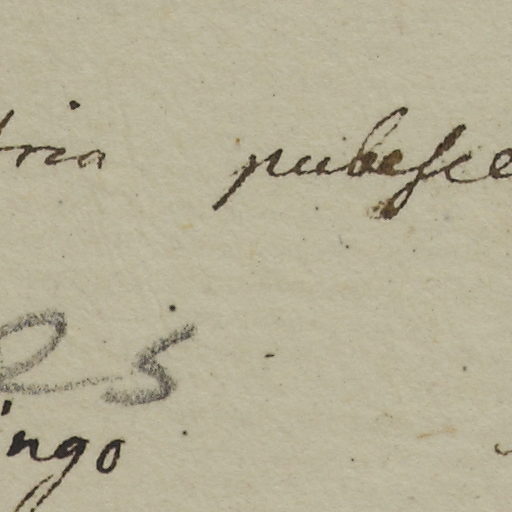 tria pubesce
25
ingo